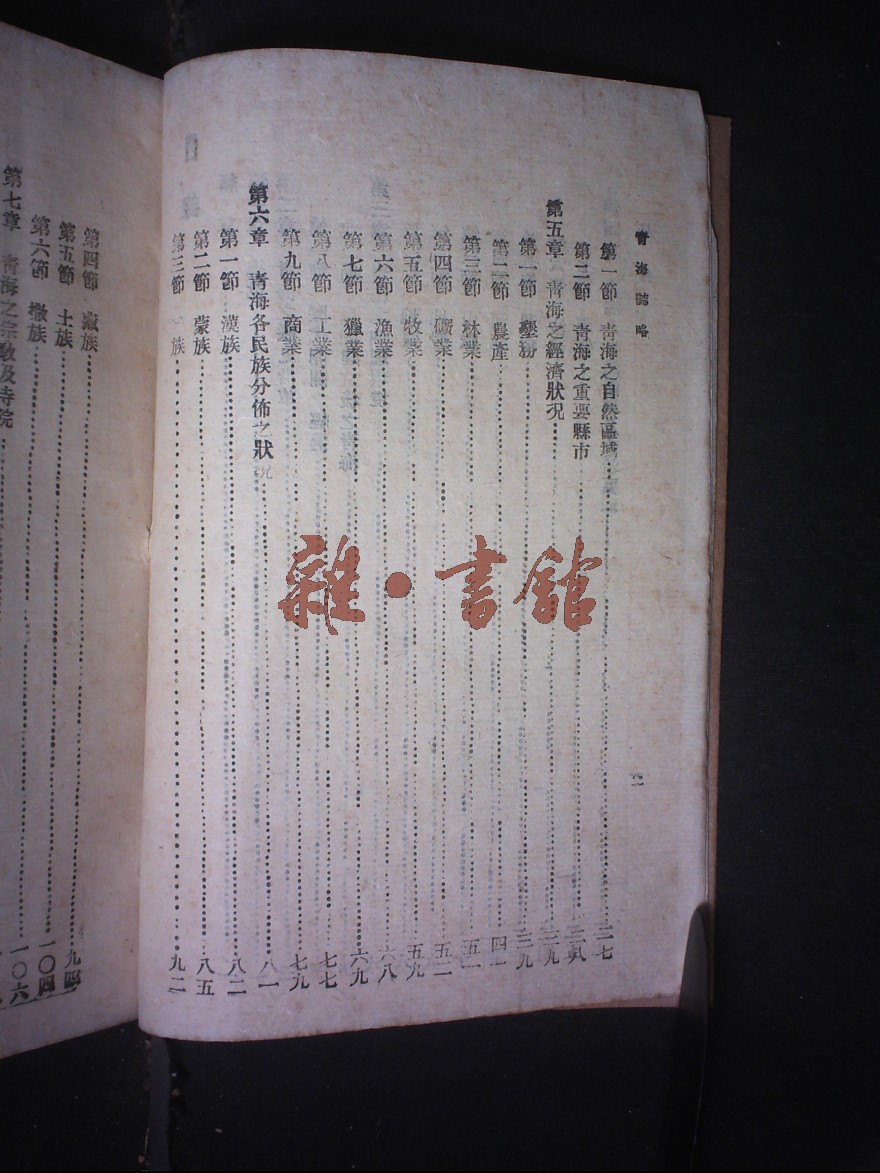 青海誌略
二
第一節 青海之自然區域 二七
第二節 青海之重要縣市 三八
第五章 青海之經濟狀况 三九
第一節 墾務 三九
第二節 農產 四一
第三節 林業 五一
第四節 礦業 五二
第五節 牧業 五九
第六節 漁業 六八
第七節 獵業 六九
第八節 工業 七七
第九節 商業 七九
第六章 青海各民族分佈之狀況 八一
第一節 漢族 八二
第二節 蒙族 八五
第三節 族 九二
第四節 藏族 九四
第五節 土族 一〇四
第六節 撒族 一〇六
第七章 青海之宗教及寺院
雜・書館